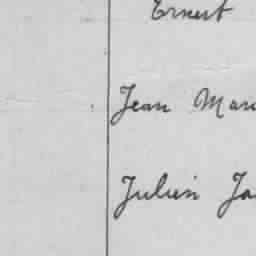 Ernest
Jean Mar
Julien Ja